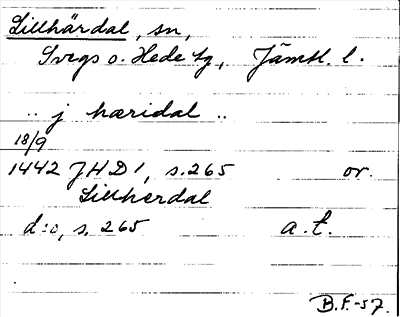 Lillhärdal, sn,
Svegs o. Hede tg, Jämtl. l.
.. j hæridal ..
18/9
1442 JHD 1, s. 265 or.
Lillherdal
d:o, s. 265 a. t.
B.F.-57.